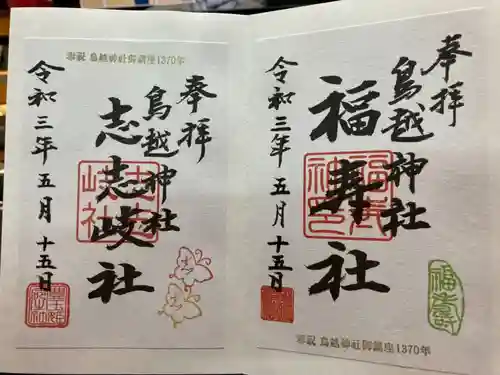 奉拝
福寿社
鳥越神社
令和三年五月十五日
奉祝 鳥越神社御鎮座1370年
福寿
奉拝
鳥越神社
志志岐社
令和三年五月十五日
奉祝 鳥越神社御鎮座1370年